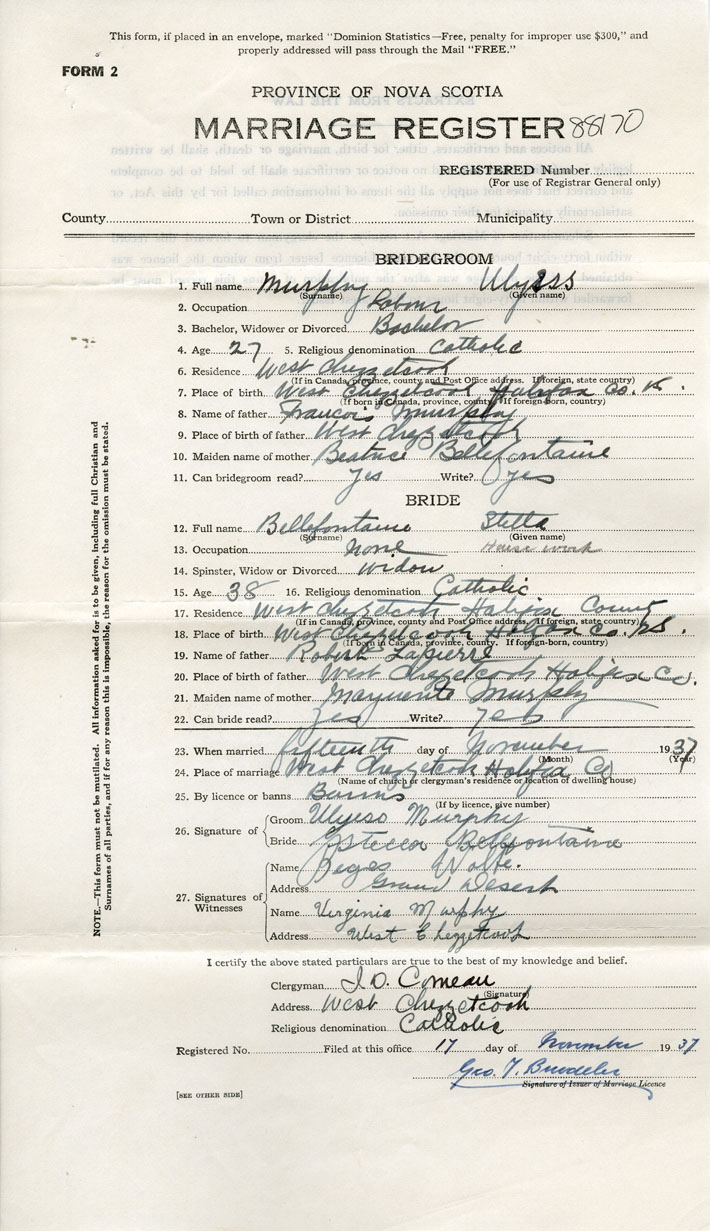 This form, if placed in an envelope, marked "Dominion Statistics—Free, penalty for improper use $300," and
properly addressed will pass through the Mail "FREE."
FORM 2
PROVINCE OF NOVA SCOTIA
MARRIAGE REGISTER 88170
REGISTERED Number
(For use of Registrar General only)
County Town or District Municipality
BRIDEGROOM
1. Full name Murphy Ulysss
(Surname) (Given name)
2. Occupation Labour
3. Bachelor, Widower or Divorced Bachelor
4. Age 27 5. Religious denomination Catholic
6. Residence West Chezzetcook
(If in Canada, province, county and Post Office address. If foreign, state country)
7. Place of birth West Chezzetcook Halifax Co.
(If born in Canada, province, county. If foreign-born, country)
8. Name of father Francois Murphy
9. Place of birth of father West Chezzetcook
10. Maiden name of mother Beatrice Bellefontaine
11. Can bridegroom read? Yes Write? yes
BRIDE
12. Full name Bellefontaine Stella
(Surname) (Given name)
13. Occupation None House work
14. Spinster, Widow or Divorced Widow
15. Age 38 16. Religious denomination Catholic
17. Residence West Chezzetcook Halifax County
(If in Canada, province, county and Post Office address. If foreign, state country)
18. Place of birth West Chezzetcook Halifax Co. N.S.
(If born in Canada, province, county. If foreign-born, country)
19. Name of father Robert Lapierre
20. Place of birth of father West Chezzetcook Halifax Co.
21. Maiden name of mother Marguerite Murphy
22. Can bride read? Yes Write? Yes
23. When married fifteenth day of November 1937
(Month) (Year)
24. Place of marriage West Chezzetcook Halifax Co
(Name of church or clergyman's residence or location of dwelling house)
25. By licence or banns Banns
(If by licence, give number)
26. Signature of
Groom Ulysso Murphy
Bride Bellfontaine
27. Signatures of Witnesses
Name Reges Wolfe.
Address Grand Desert
Name Virginia Murphy
Address West Chezzetcook
I certify the above stated particulars are true to the best of my knowledge and belief.
Clergyman J. D. Comeau
(Signature)
Address West Chezzetcook
Religious denomination Catholic
Registered No. Filed at this office 17 day of November 1937
Geo. T.
Signature of Issuer of Marriage Licence
[SEE OTHER SIDE]
NOTE.—This form must not be mutilated. All information asked for is to be given, including full Christian and
Surnames of all parties, and if for any reason this is impossible, the reason for the omission must be stated.